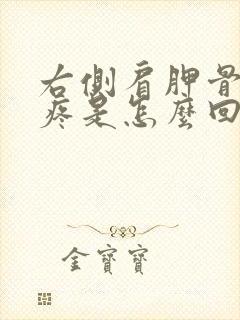 右側肩胛骨
疼是怎麼回
金寶寶